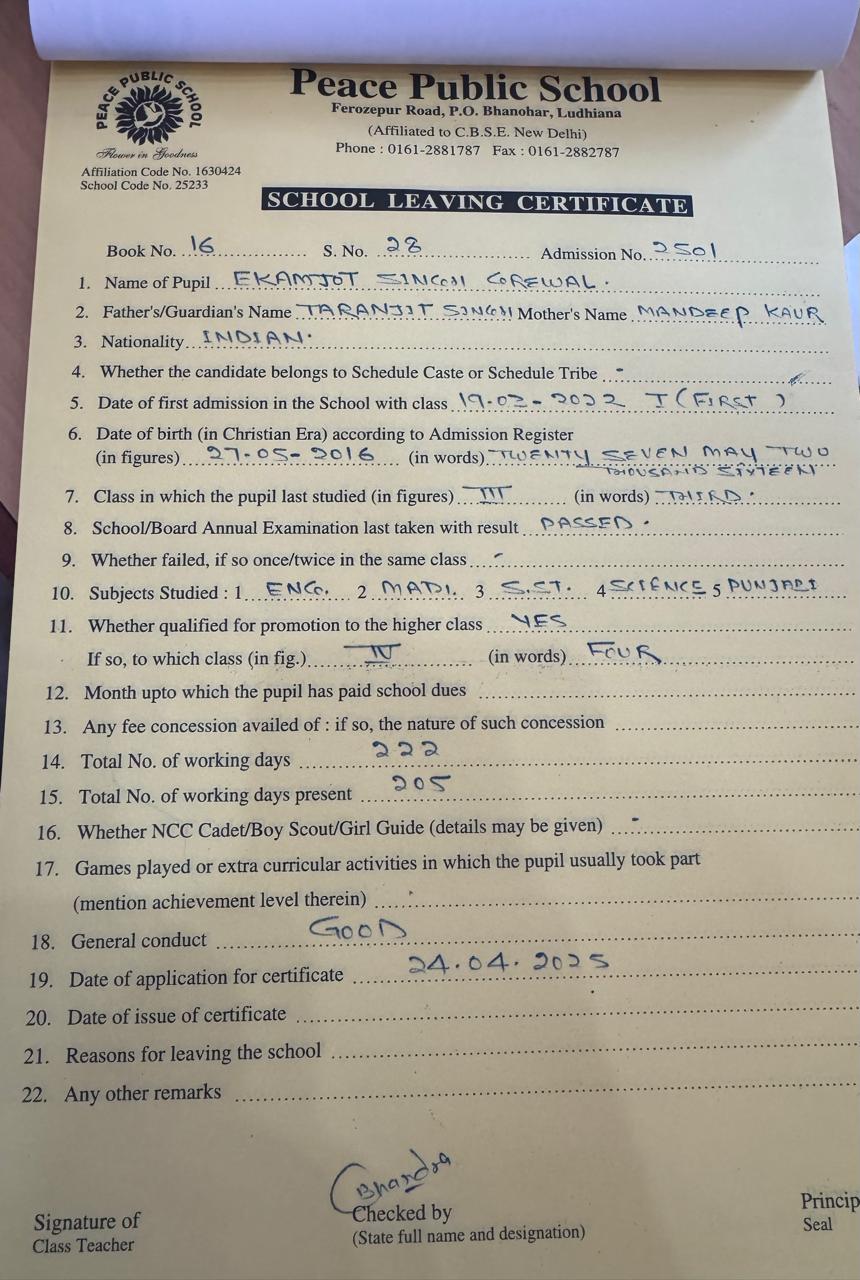 PEACE PUBLIC SCHOOL
Flower in Goodness
Affiliation Code No. 1630424
School Code No. 25233
Peace Public School
Ferozepur Road, P.O. Bhanohar, Ludhiana
(Affiliated to C.B.S.E. New Delhi)
Phone : 0161-2881787 Fax : 0161-2882787
SCHOOL LEAVING CERTIFICATE
Book No. 16 S. No. 28 Admission No. 2501
1. Name of Pupil EKAMJOT SINGH GOREWAL.
2. Father's/Guardian's Name TARANJIT SINGH Mother's Name MANDEEP KAUR
3. Nationality INDIAN.
4. Whether the candidate belongs to Schedule Caste or Schedule Tribe -
5. Date of first admission in the School with class 19-03-2022 I (FIRST)
6. Date of birth (in Christian Era) according to Admission Register
(in figures) 27-05-2016 (in words) TWENTY SEVEN MAY TWO
THOUSAND SIXTEEN
7. Class in which the pupil last studied (in figures) III (in words) THIRD.
8. School/Board Annual Examination last taken with result PASSED.
9. Whether failed, if so once/twice in the same class -
10. Subjects Studied : 1 ENG. 2 MATH. 3 S.ST. 4 SCIENCE 5 PUNJABI
11. Whether qualified for promotion to the higher class YES
If so, to which class (in fig.) IV (in words) FOUR
12. Month upto which the pupil has paid school dues
13. Any fee concession availed of : if so, the nature of such concession
14. Total No. of working days 222
15. Total No. of working days present 205
16. Whether NCC Cadet/Boy Scout/Girl Guide (details may be given) -
17. Games played or extra curricular activities in which the pupil usually took part
(mention achievement level therein)
18. General conduct GOOD
19. Date of application for certificate 24.04.2025
20. Date of issue of certificate
21. Reasons for leaving the school
22. Any other remarks
Signature of
Class Teacher
Checked by
(State full name and designation)
Princip
Seal